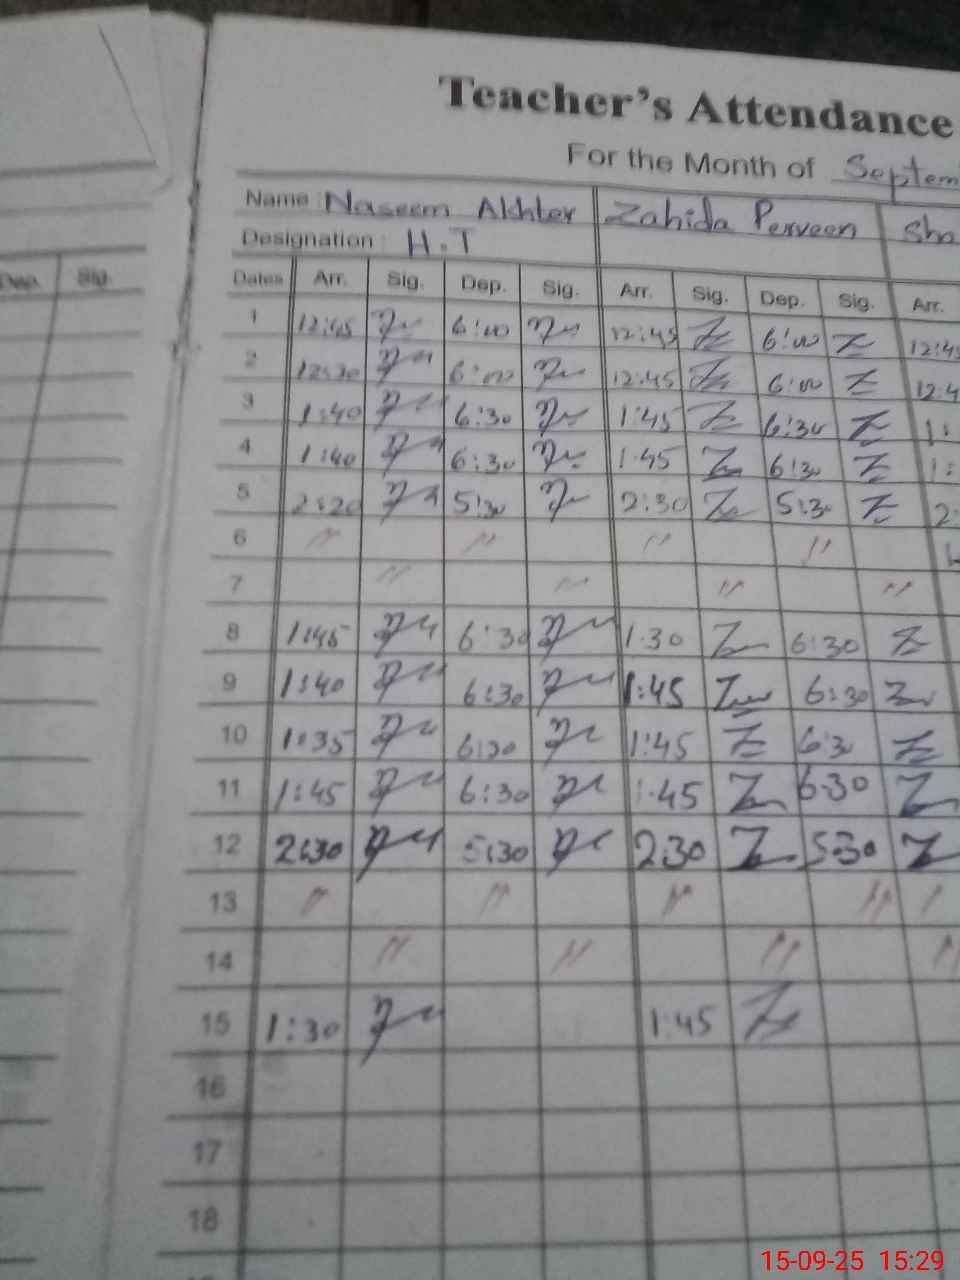 Teacher's Attendance
For the Month of Septem
Name : Naseem Akhter Zahida Perveen Sha
Designation : H.T
Dep. Sig. Dates Arr. Sig. Dep. Sig. Arr. Sig. Dep. Sig. Arr.
1 12:45 6:00 12:45 6:00 12:45
2 12:30 6:00 12:45 6:00 12:4
3 1:40 6:30 1:45 6:30 1:
4 1:40 6:30 1:45 6:30 1:
5 2:20 5:30 2:30 5:30 2:
6 " " " "
7 " " " "
8 1:45 6:30 1:30 6:30
9 1:40 6:30 1:45 6:30
10 1:35 6:30 1:45 6:30
11 1:45 6:30 1:45 6:30
12 2:30 5:30 2:30 5:30
13 " " " "
14 " " " "
15 1:30 1:45
16
17
18
15-09-25 15:29